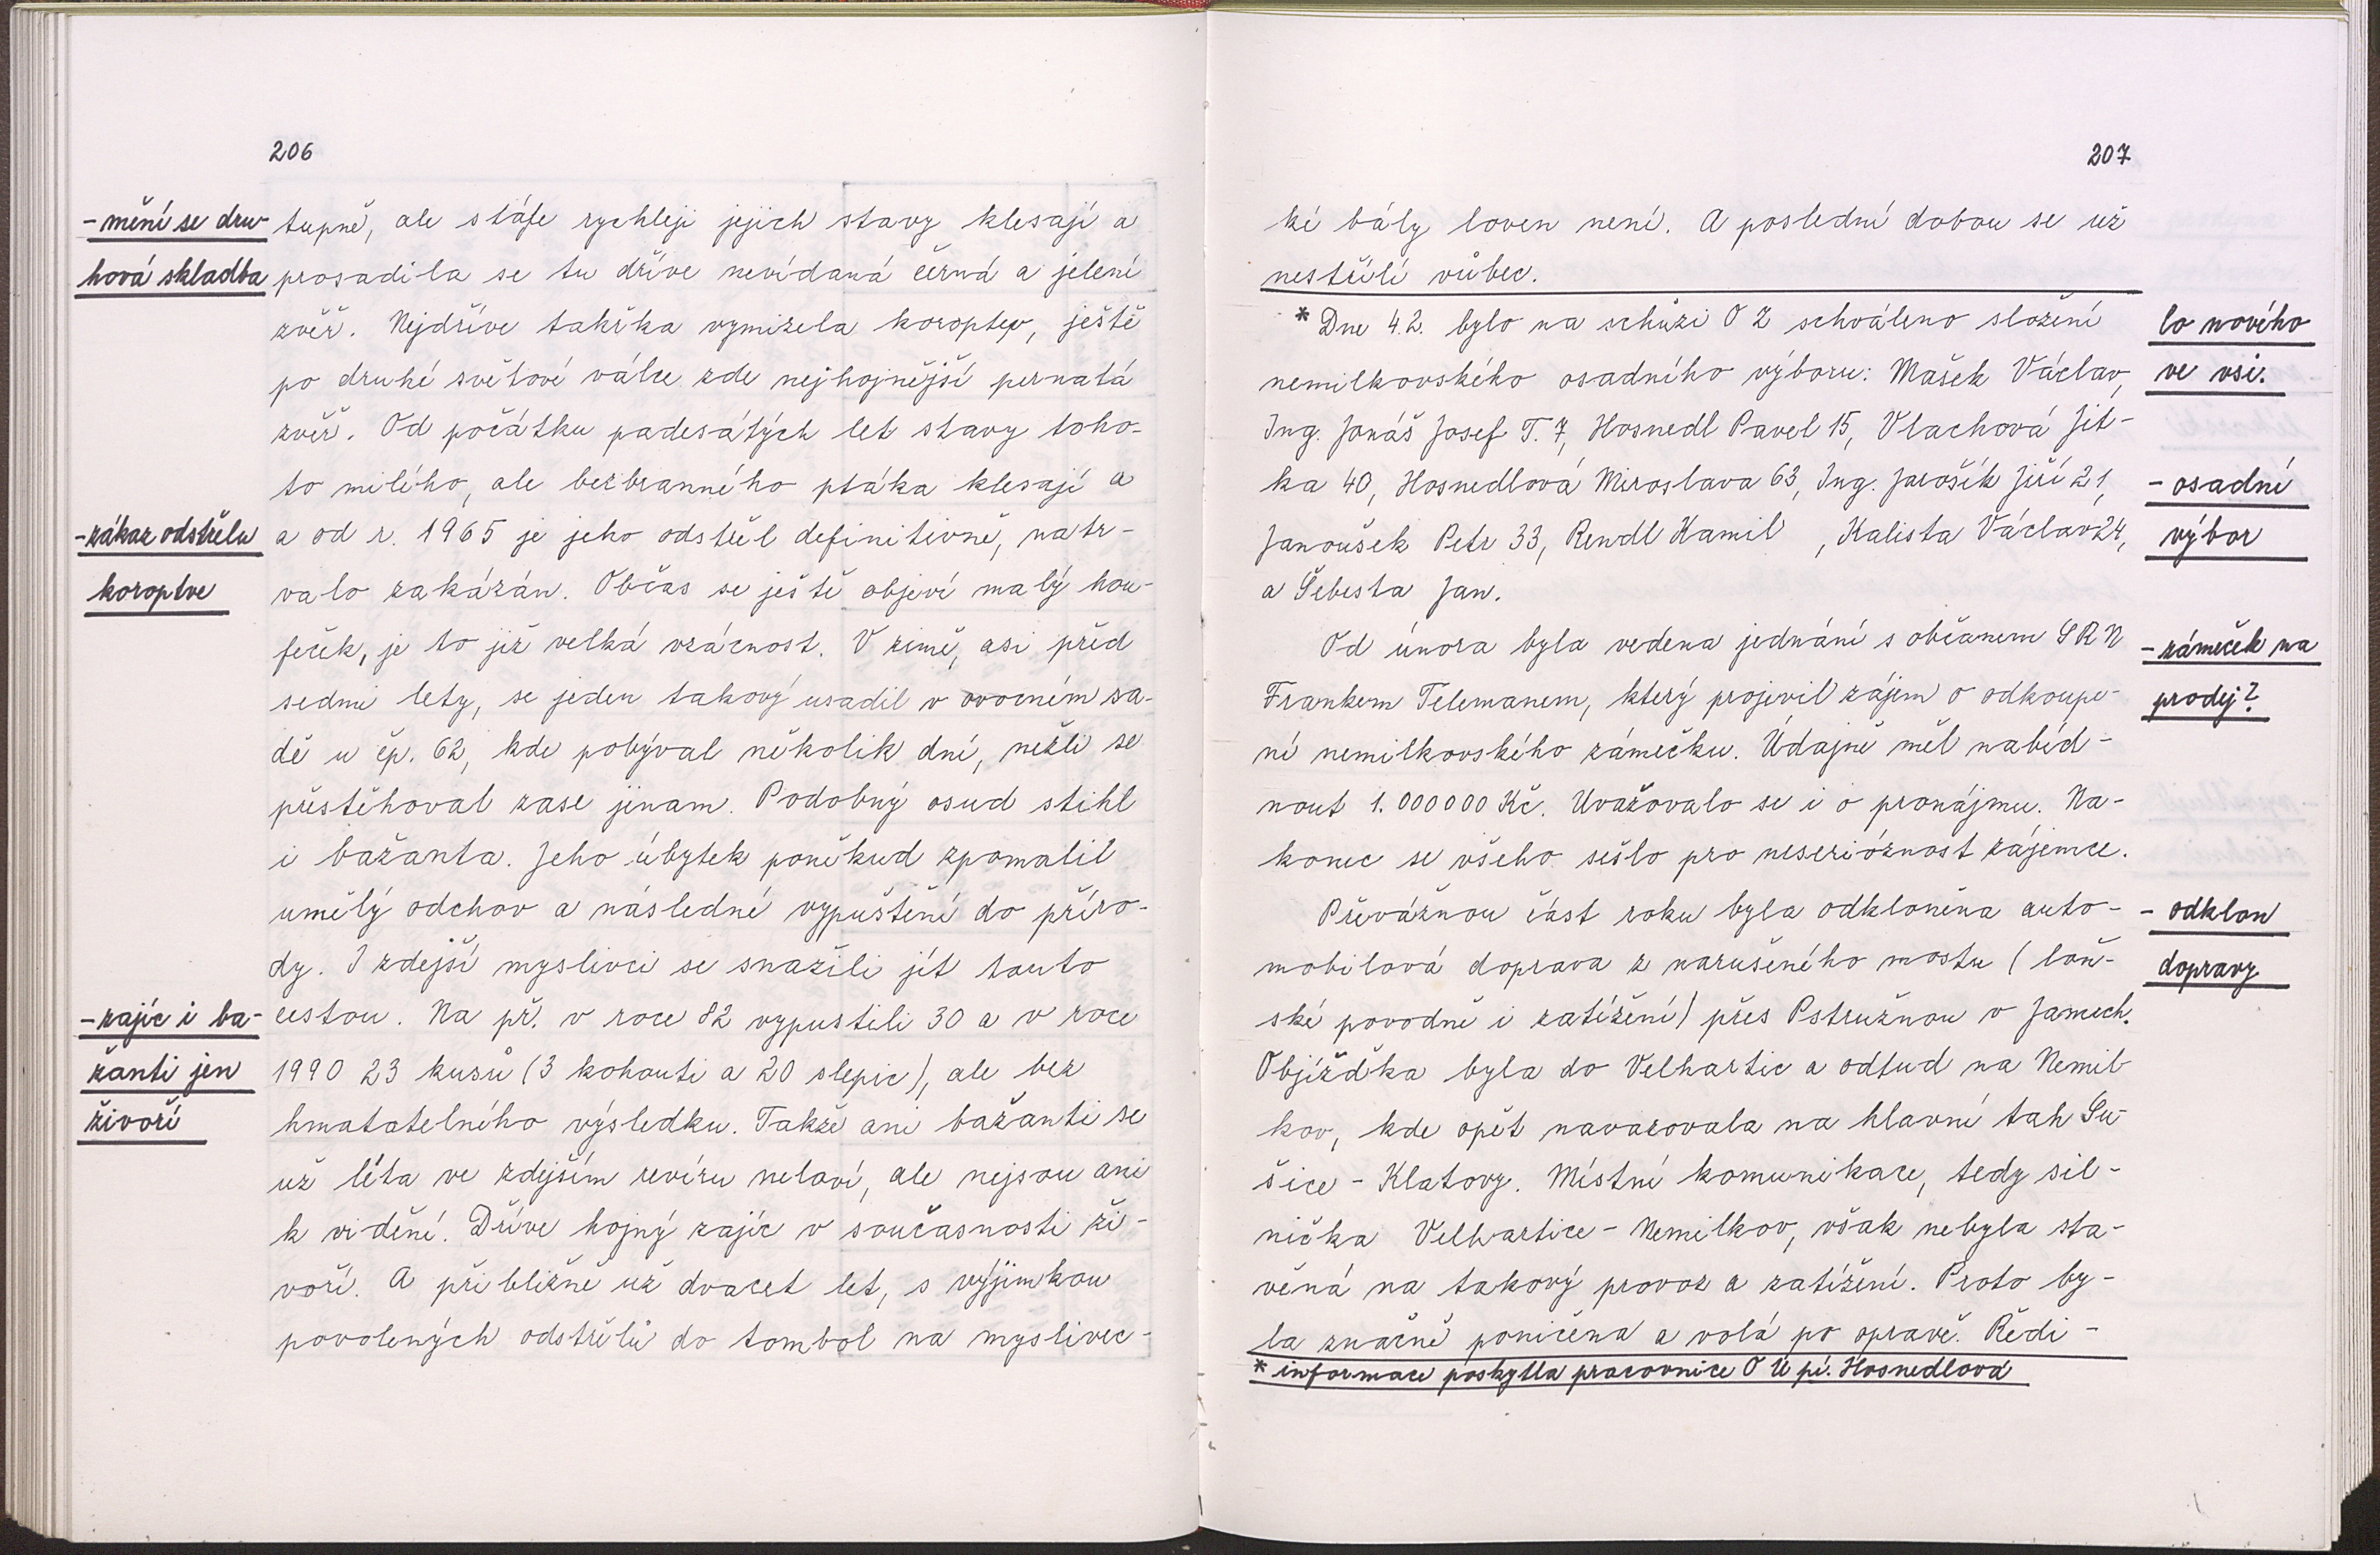 206
-mění se dru-
hová skladba
tupně, ale stále rychleji jejich stavy klesají a
prosadila se tu dříve nevídaná černá a jelení
zvěř. Nejdříve takřka vymizela koroptev, ještě
po druhé světové válce zde nejhojnější pernatá
zvěř. Od počátku padesátých let stavy toho-
to milého, ale bezbranného ptáka klesají a
-zákaz odstřelu
koroptve
a od r. 1965 je jeho odstřel definitivně, natr-
valo zakázán. Občas se ještě objeví malý hou-
feček, je to již velká vzácnost. V zimě, asi před
sedmi lety, se jeden takový usadil v ovocném sa-
dě u čp. 62, kde pobýval několik dní, nežli se
přestěhoval zase jinam. Podobný osud stihl
i bažanta. Jeho úbytek poněkud zpomalil
umělý odchov a následné vypuštění do příro-
dy. I zdejší myslivci se snažili jít touto
-zajíc i ba-
žanti jen
živoří
cestou. Na př. v roce 82 vypustili 30 a v roce
1990 23 kusů (3 kohouti a 20 slepic), ale bez
hmatatelného výsledku. Takže ani bažanti se
už léta ve zdejším revíru neloví, ale nejsou ani
k vidění. Dříve hojný zajíc v současnosti ži-
voří. A přibližně už dvacet let, s výjimkou
povolených odstřelů do tombol na myslivec-
207
ké bály loven není. A poslední dobou se už
nestřílí vůbec.
* Dne 4.2. bylo na schůzi OZ schváleno složení
nemilkovského osadního výboru: Mašek Václav,
Ing. Jonáš Josef T. 7, Hosnedl Pavel 15, Vlachová Jit-
ka 40, Hosnedlová Miroslava 63, Ing. Jarošík Jiří 21,
Janoušek Petr 33, Rendl Kamil , Kalista Václav 24,
a Šebesta Jan.
Co nového
ve vsi.
- osadní
výbor
Od února byla vedena jednání s občanem SRN
Frankem Telemanem, který projevil zájem o odkoupe-
ní nemilkovského zámečku. Údajně měl nabíd-
nout 1.000000 Kč. Uvažovalo se i o pronájmu. Na-
konec se všeho sešlo pro neserióznost zájemce.
- zámeček na
prodej?
Převážnou část roku byla odkloněna auto-
mobilová doprava z narušeného mostu (loň-
ské povodně i zatížení) přes Pstružnou v Jamech.
Objížďka byla do Velhartic a odtud na Nemil-
kov, kde opět navazovala na hlavní tah Su-
šice - Klatovy. Místní komunikace, tedy sil-
nička Velhartice - Nemilkov, však nebyla sta-
věná na takový provoz a zatížení. Proto by-
la značně poničena a volá po opravě. Ředi-
- odklon
dopravy
* informace poskytla pracovnice OÚ pí. Hosnedlová